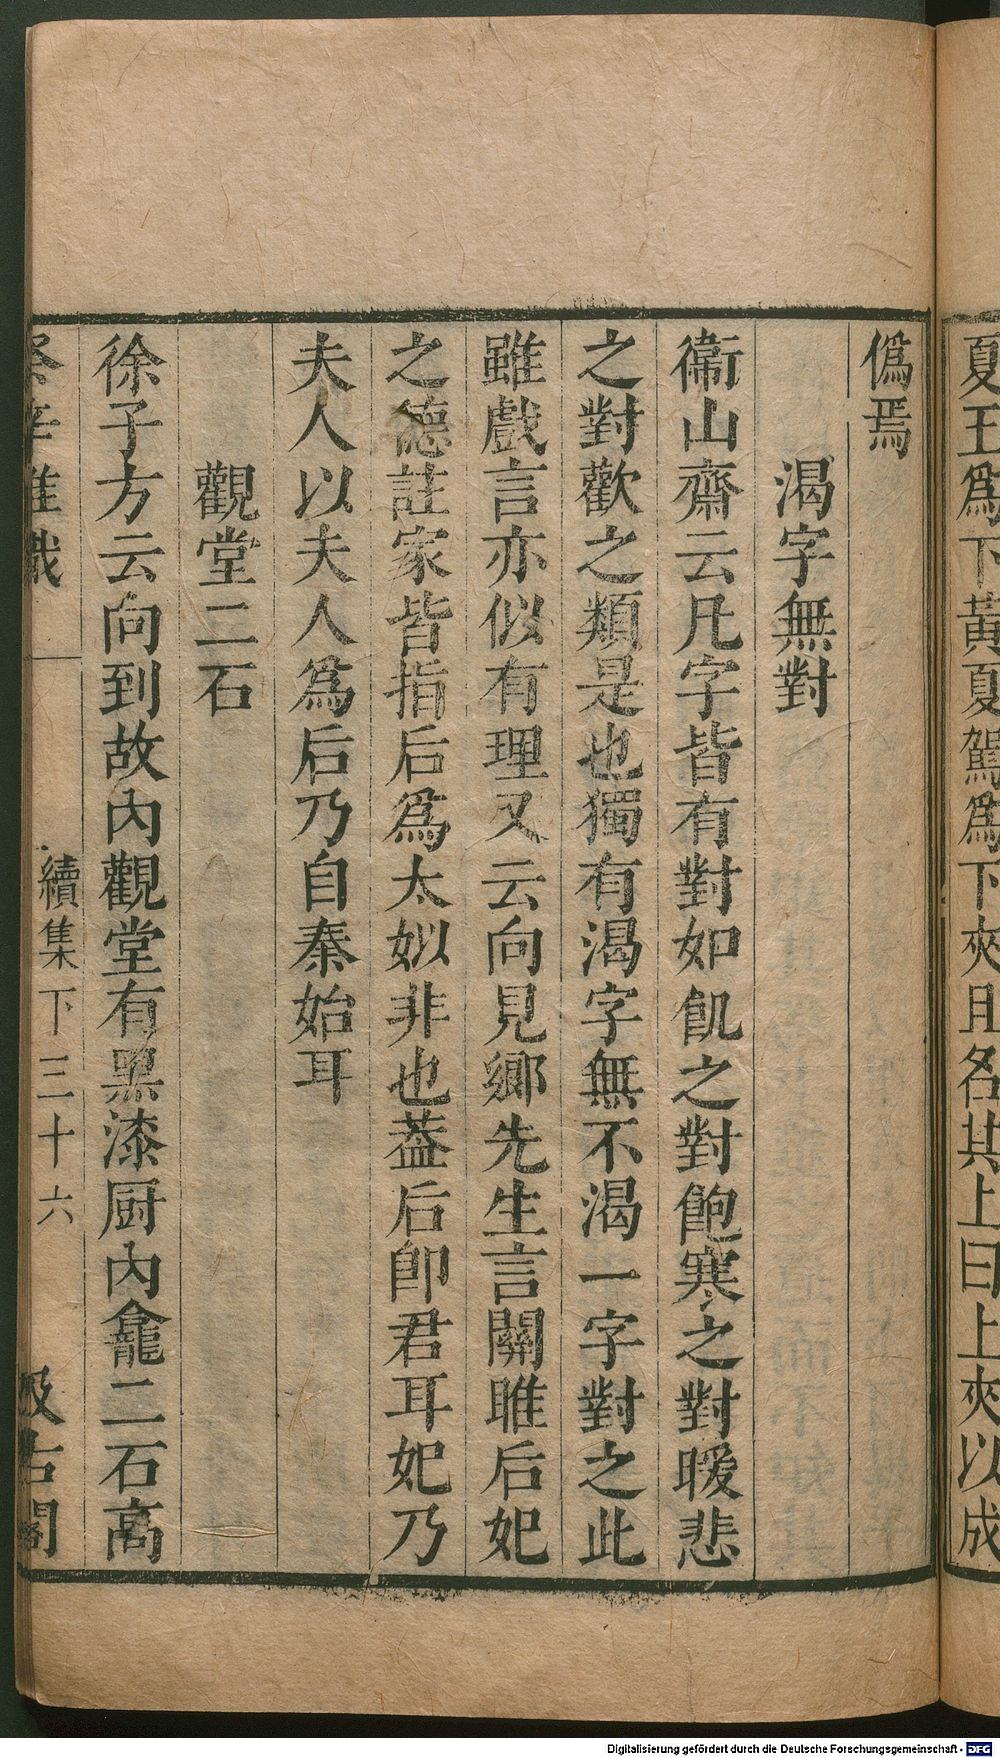 夏王爲下黃夏駕爲下夾且各其上曰上夾以成
僞焉
渴字無對
衞山齋云凡字皆有對如飢之對飽寒之對暖悲
之對歡之類是也獨有渴字無不渴一字對之此
雖戲言亦似有理又云向見鄉先生言關雎后妃
之德註家皆指后爲太姒非也葢后卽君耳妃乃
夫人以夫人爲后乃自秦始耳
觀堂二石
徐子方云向到故內觀堂有黑漆厨內龕二石高
癸辛雜識
續集下三十六
汲古閣
Digitalisierung gefördert durch die Deutsche Forschungsgemeinschaft - DFG